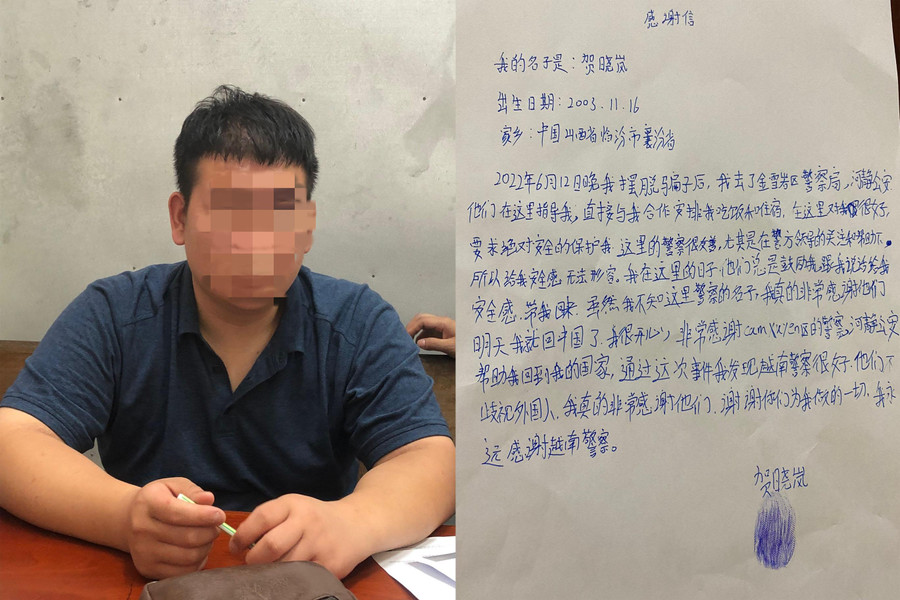 感谢信
我的名子是：贺晓岚
出生日期：2003.11.16
家乡：中国山西省临汾市襄汾省
2022年6月12日晚我摆脱骗子后，我去了金雪岩区警察局，河静公安
他们在这里指导我，直接与我合作安排我吃饭和住宿，在这里对我很好
要求绝对安全的保护我，这里的警察很友善，尤其是在警方领导的关注和帮助下。
所以给我安全感无法形容。我在这里的日子，他们总是鼓励我，跟我说话给我
安全感，带我回来，虽然我不知这里警察的名子，我真的非常感谢他们
明天我就回中国了，我很开心，非常感谢cam xuyen区的警察，河静公安
帮助我回到我的国家，通过这次事件我发现越南警察很好，他们不
歧视外国人，我真的非常感谢他们，谢谢他们为我做的一切，我永
远感谢越南警察。
贺晓岚